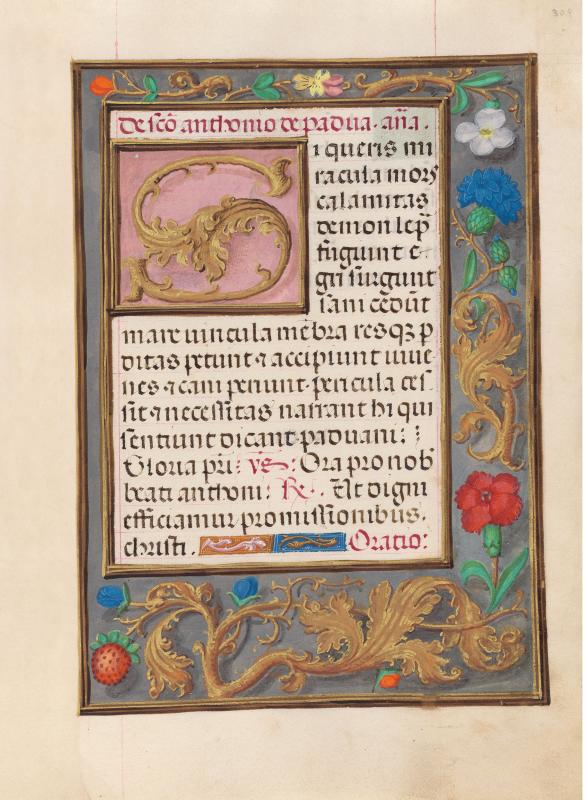 304
de scō anthonio de padua. añā.
Si queris mi
racula mors
calamitas
demon lep̄
fugiunt e-
gri surgunt
sani cedūt
mare uincula mēbra resqȝ p
ditas petunt ⁊ accipiunt iuue
nes ⁊ cani pereunt pericula ces
sāt ⁊ necessitas narrant hi qui
sentiunt dicant paduani:
Gloria pri: vs: Ora pro nob
beati anthoni: R. Ut digni
efficiamur promissionibus.
christi. Oratio: